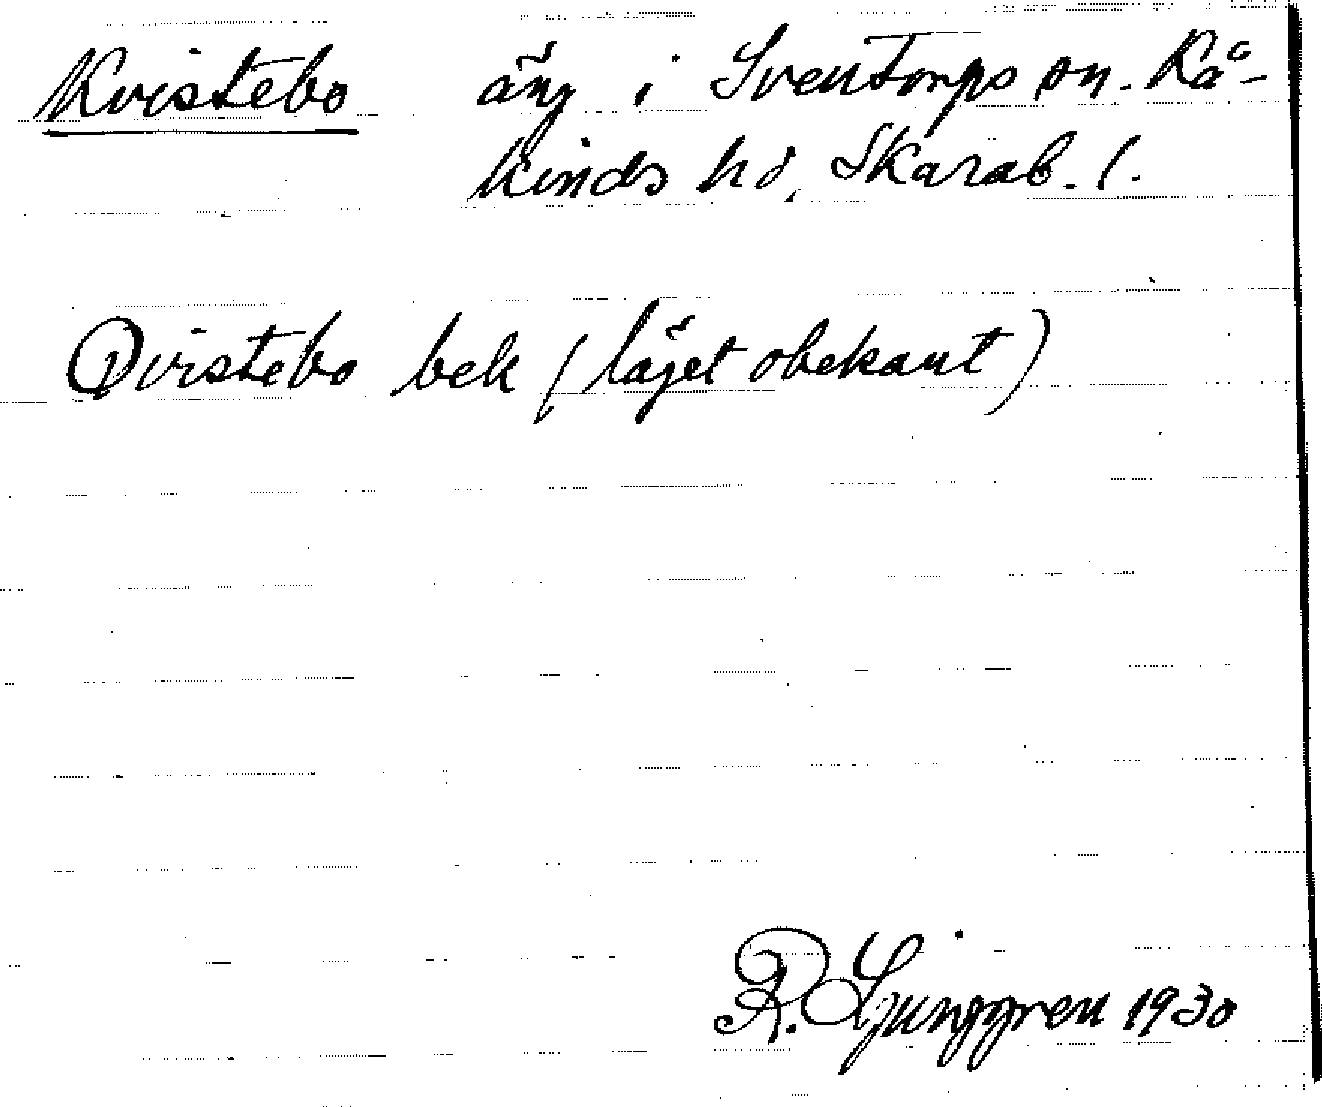 Kvistebo äng i Sventorps sn. Kå-
kinds hd, Skarab. l.
Qvistebo bek (läget obekant)
R. Ljunggren 1930